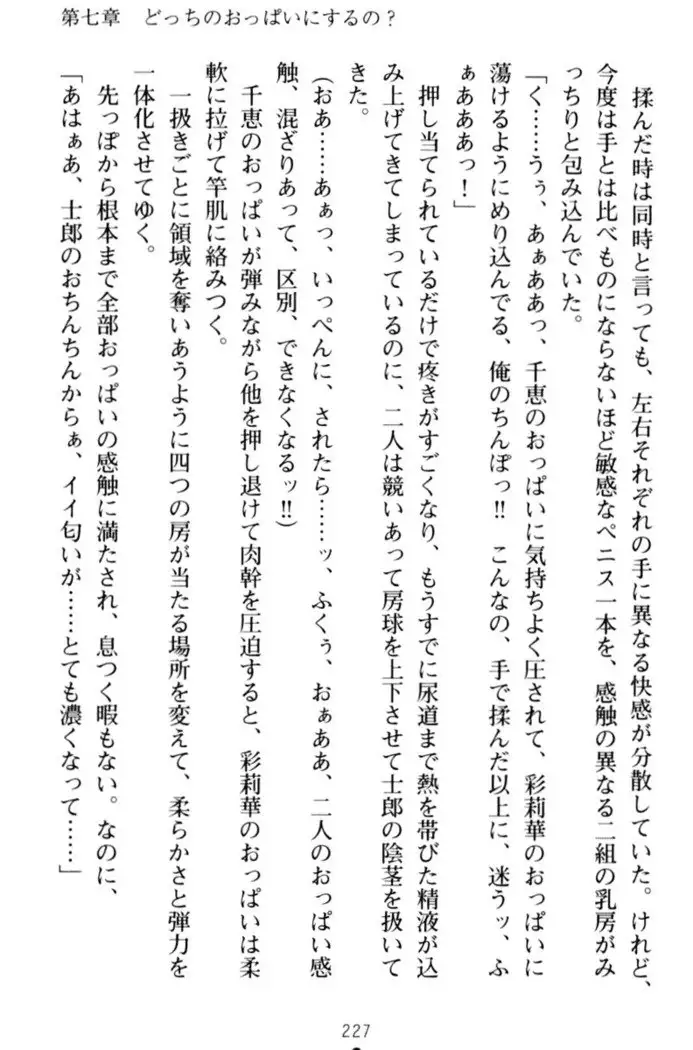 第七章　どっちのおっぱいにするの？
揉んだ時は同時と言っても、左右それぞれの手に異なる快感が分散していた。けれど、
今度は手とは比べものにならないほど敏感なペニス一本を、感触の異なる二組の乳房がみ
っちりと包み込んでいた。
「く……うぅ、あぁああっ、千恵のおっぱいに気持ちよく圧されて、彩莉華のおっぱいに
蕩けるようにめり込んでる、俺のちんぽっ!!　こんなの、手で揉んだ以上に、迷うッ、ふ
ぁあああっ！」
押し当てられているだけで疼きがすごくなり、もうすでに尿道まで熱を帯びた精液が込
み上げてきてしまっているのに、二人は競いあって房球を上下させて士郎の陰茎を扱いて
きた。
(おあ……あぁっ、いっぺんに、されたら……ッ、ふくぅ、おぁああ、二人のおっぱい感
触、混ざりあって、区別、できなくなるッ!!)
千恵のおっぱいが弾みながら他を押し退けて肉幹を圧迫すると、彩莉華のおっぱいは柔
軟に拉げて竿肌に絡みつく。
一扱きごとに領域を奪いあうように四つの房が当たる場所を変えて、柔らかさと弾力を
一体化させてゆく。
先っぽから根本まで全部おっぱいの感触に満たされ、息つく暇もない。なのに、
「あはぁあ、士郎のおちんちんからぁ、イイ匂いが……とても濃くなって……」
227